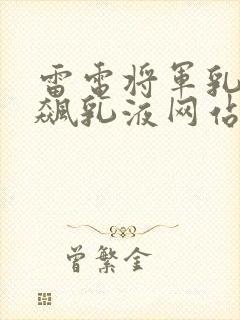 雷电将军乳
飙乳液网站
曾繁金